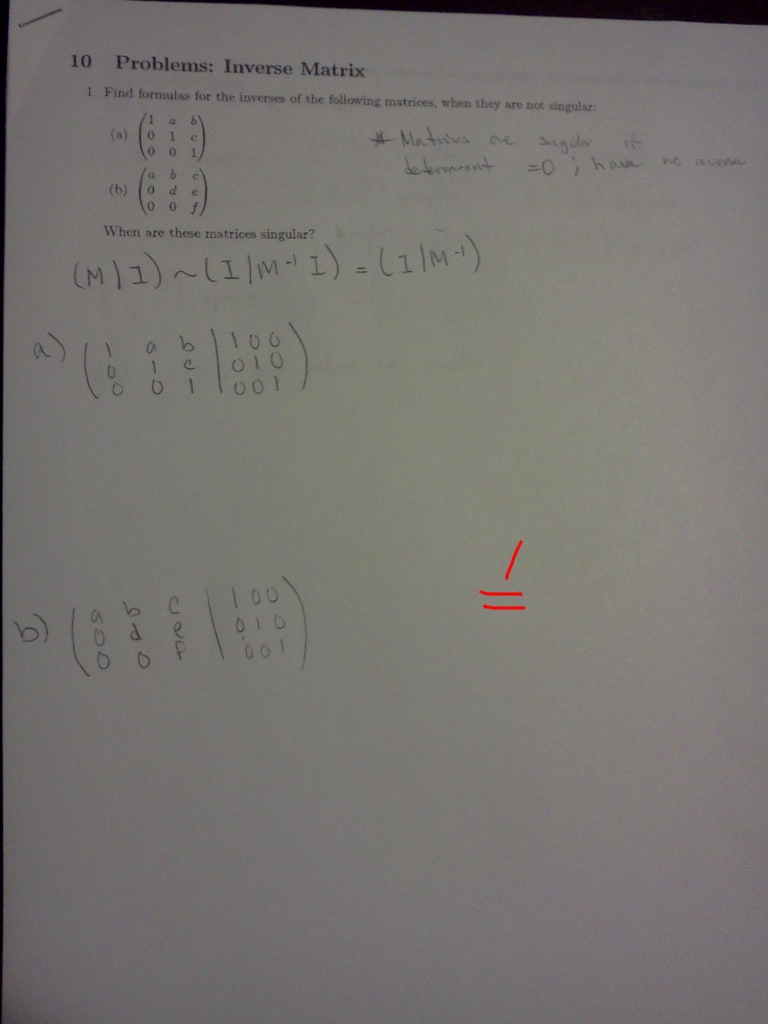 10 Problems: Inverse Matrix
1. Find formulas for the inverses of the following matrices, when they are not singular:
(a) (1 a b
0 1 c
0 0 1)
(b) (a b c
0 d e
0 0 f)
* Matrices are singular if
determinant =0 ; have no inverse
When are these matrices singular?
(M|I) ~ (I|M⁻¹ I) = (I|M⁻¹)
a) (1 a b | 1 0 0
0 1 c | 0 1 0
0 0 1 | 0 0 1)
b) (a b c | 1 0 0
0 d e | 0 1 0
0 0 f | 0 0 1)